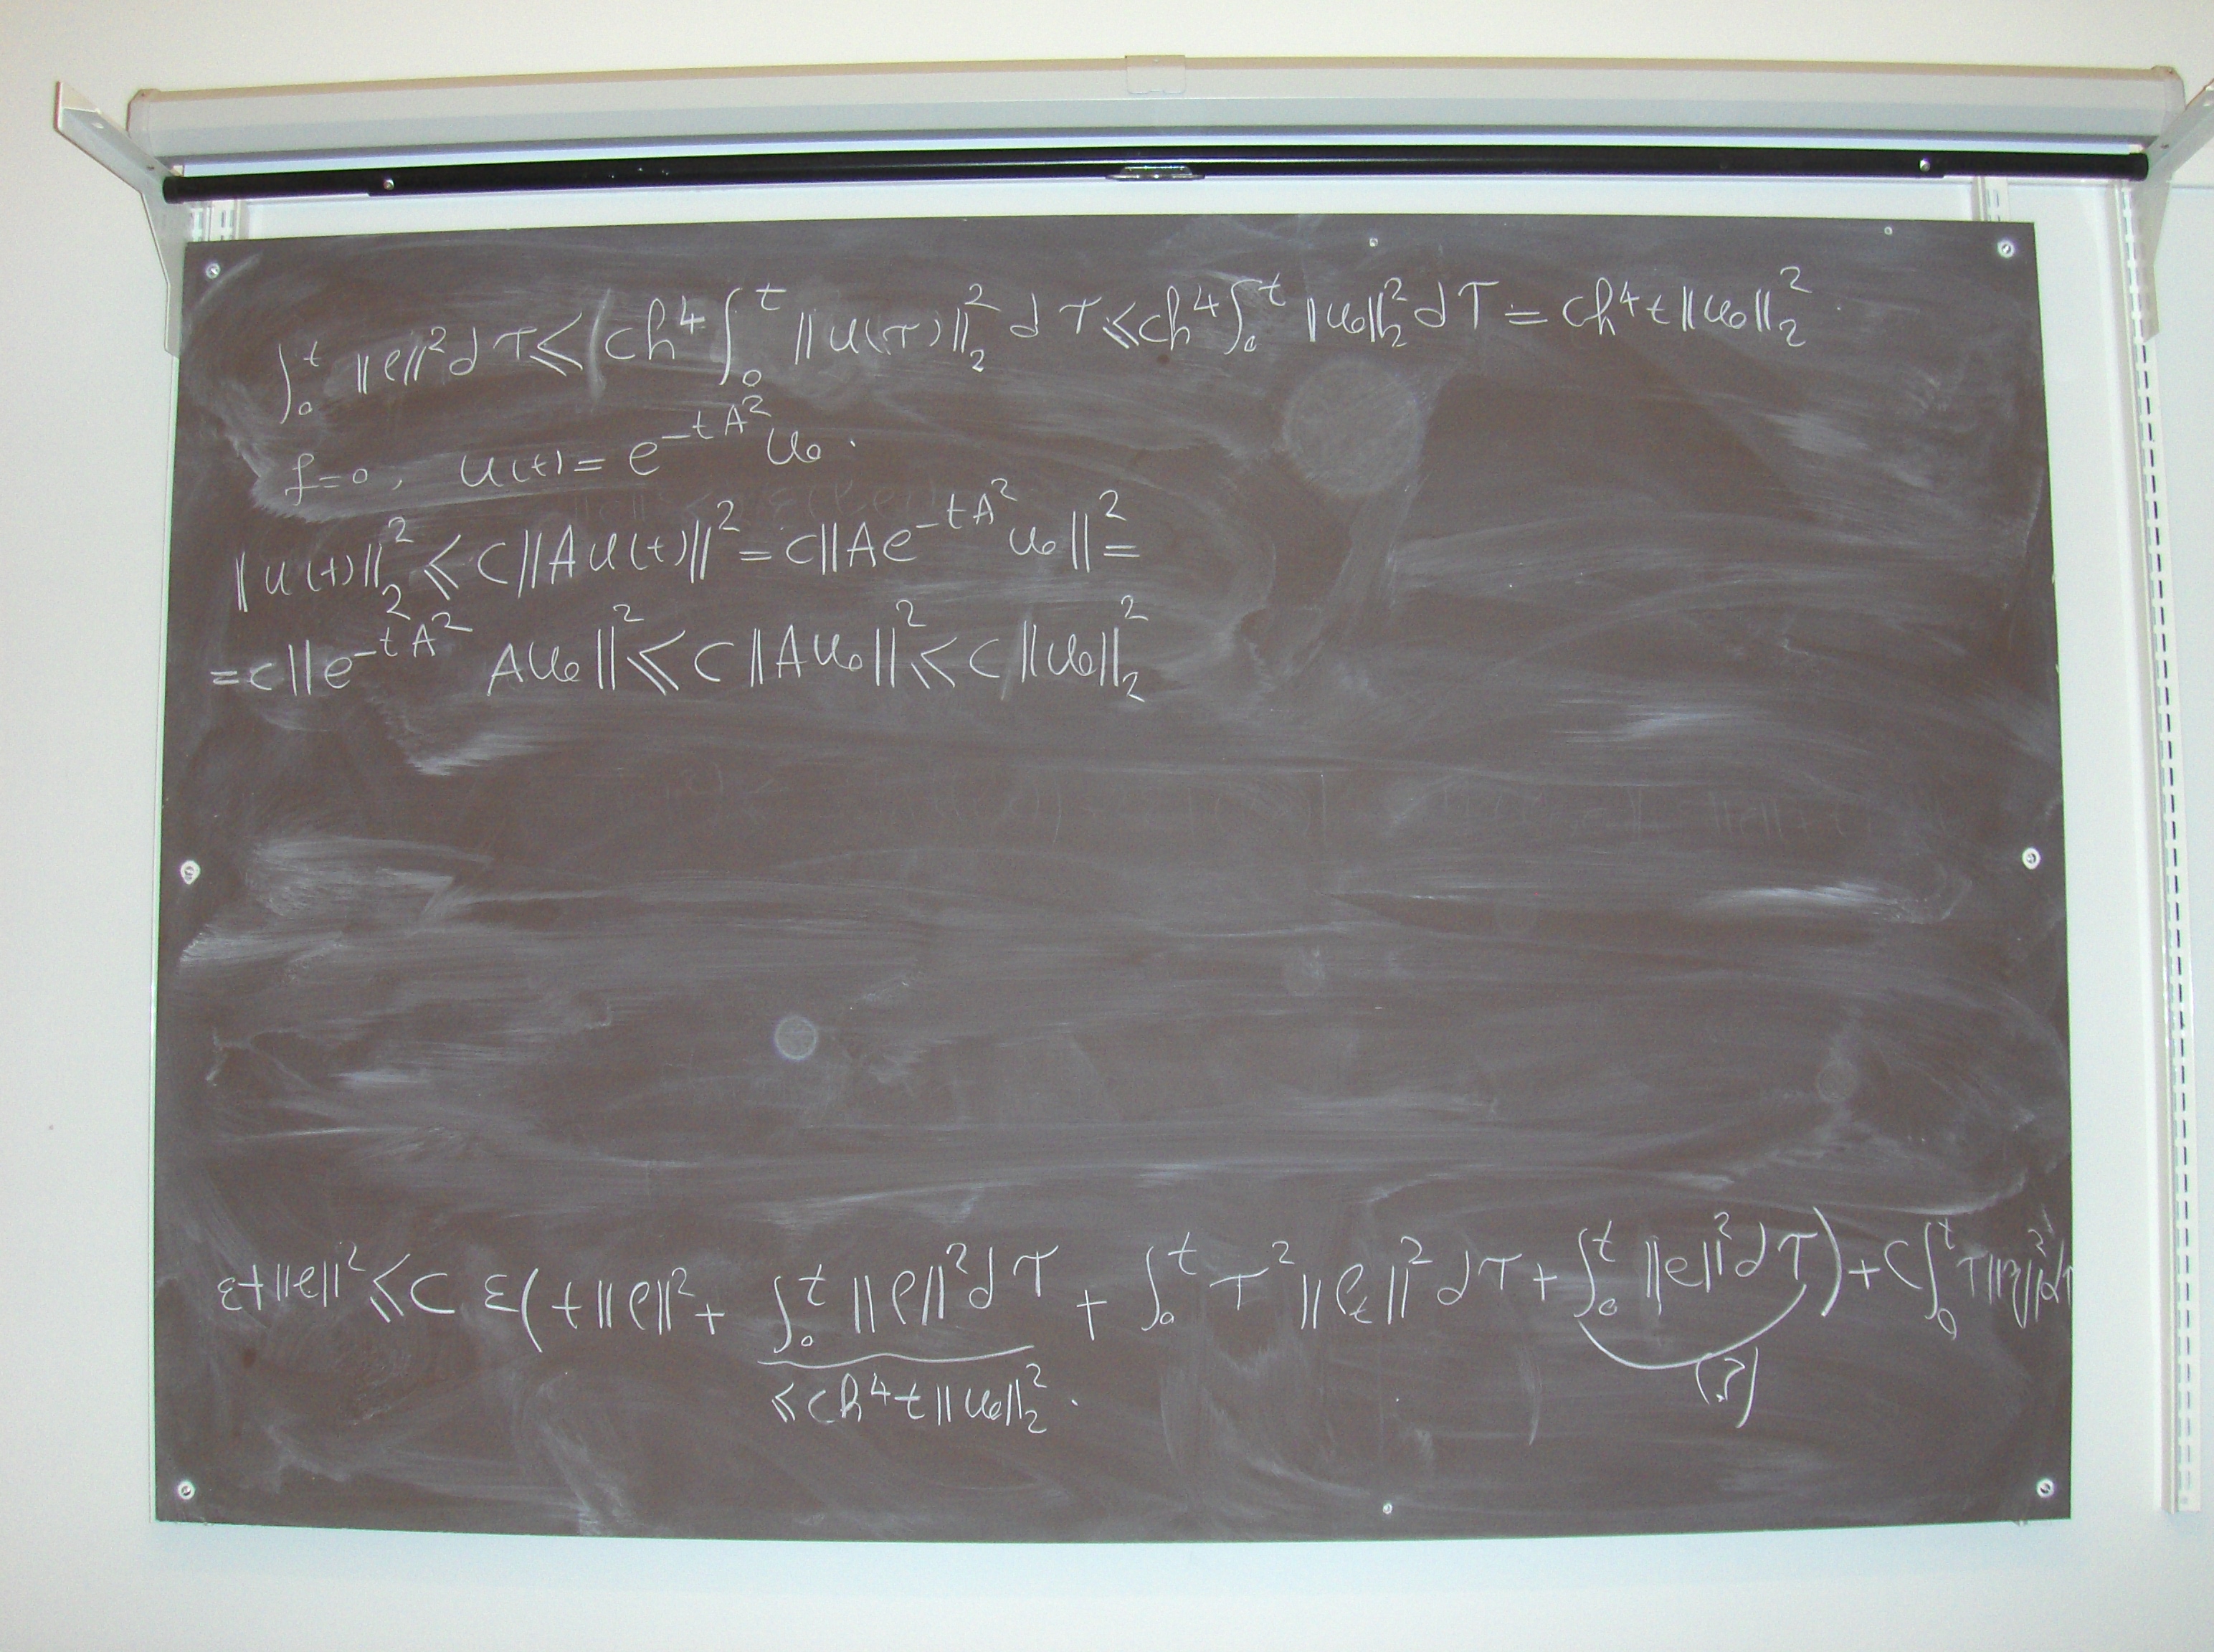 ∫₀ᵗ ‖ρ‖² dτ ≤ (ch⁴ ∫₀ᵗ ‖u(τ)‖₂² dτ ≤ ch⁴ ∫₀ᵗ ‖u₀‖₂² dτ = ch⁴t‖u₀‖₂².
f=0, u(t) = e^{-tA²}u₀.
‖u(t)‖₂² ≤ C‖Au(t)‖² = C‖Ae^{-tA²}u₀‖² =
= C‖e^{-tA²} Au₀‖² ≤ C‖Au₀‖² ≤ C‖u₀‖₂²
εt‖e‖² ≤ C ε(t‖ρ‖² + ∫₀ᵗ ‖ρ‖² dτ + ∫₀ᵗ τ²‖ρₜ‖² dτ + ∫₀ᵗ ‖e‖² dτ) + C∫₀ᵗ τ‖η‖² dτ
≤ ch⁴t‖u₀‖₂². (?)